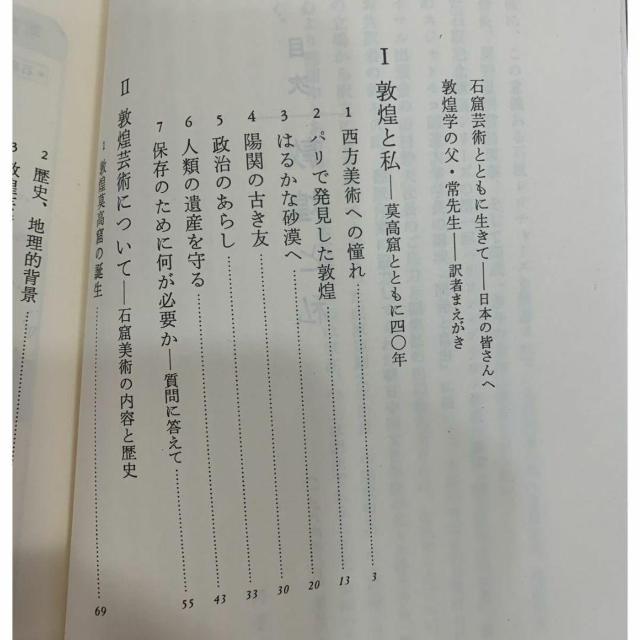 石窟芸術とともに生きて──日本の皆さんへ
敦煌学の父・常先生──訳者まえがき
I 敦煌と私──莫高窟とともに四〇年
1 西方美術への憧れ……… 3
2 パリで発見した敦煌……… 13
3 はるかな砂漠へ……… 20
4 陽関の古き友……… 30
5 政治のあらし……… 33
6 人類の遺産を守る……… 43
7 保存のために何が必要か──質問に答えて……… 55
II 敦煌芸術について──石窟美術の内容と歴史
1 敦煌莫高窟の誕生……… 69
2 歴史、地理的背景………
3 敦煌